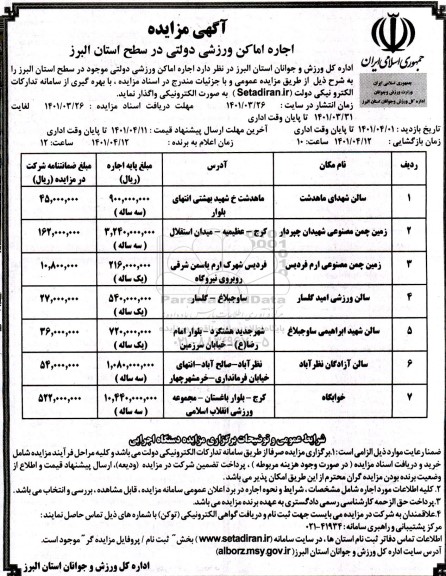 آگهی مزایده
اجاره اماکن ورزشی دولتی در سطح استان البرز
جمهوری اسلامی ایران
جمهوری اسلامی ایران
وزارت ورزش و جوانان
اداره کل ورزش و جوانان استان البرز
اداره کل ورزش و جوانان استان البرز در نظر دارد اجاره اماکن ورزشی دولتی موجود در سطح استان البرز را
به شرح ذیل از طریق مزایده عمومی و با جزئیات مندرج در اسناد مزایده ، با بهره گیری از سامانه تدارکات
الکترونیکی دولت (Setadiran.ir) به صورت الکترونیکی واگذار نماید.
زمان انتشار در سایت : ۱۴۰۱/۰۳/۲۶ مهلت دریافت اسناد مزایده : ۱۴۰۱/۰۳/۲۶ لغایت
۱۴۰۱/۰۳/۳۱
تاریخ بازدید : ۱۴۰۱/۰۴/۰۱ تا پایان وقت اداری آخرین مهلت ارسال پیشنهاد قیمت : ۱۴۰۱/۰۴/۱۱ تا پایان وقت اداری
زمان بازگشایی : ۱۴۰۱/۰۴/۱۲ ساعت: ۱۰ زمان اعلام به برنده : ۱۴۰۱/۰۴/۱۲ ساعت : ۱۲
ردیف نام مکان آدرس مبلغ پایه اجاره (ریال) مبلغ ضمانتنامه شرکت در مزایده (ریال)
۱ سالن شهدای ماهدشت ماهدشت خ شهید بهشتی انتهای بلوار ۹۰۰,۰۰۰,۰۰۰ (سه ساله ) ۴۵,۰۰۰,۰۰۰
۲ زمین چمن مصنوعی شهیدان چپردار کرج – عظیمیه – میدان استقلال ۳,۲۴۰,۰۰۰,۰۰۰ (سه ساله ) ۱۶۲,۰۰۰,۰۰۰
۳ زمین چمن مصنوعی ارم فردیس فردیس شهرک ارم یاسمن شرقی روبروی نیروگاه ۲۱۶,۰۰۰,۰۰۰ (یک ساله ) ۱۰,۸۰۰,۰۰۰
۴ سالن ورزشی امید گلسار ساوجبلاغ – گلسار ۵۴۰,۰۰۰,۰۰۰ (یک ساله ) ۲۷,۰۰۰,۰۰۰
۵ سالن شهید ابراهیمی ساوجبلاغ شهرجدید هشتگرد – بلوار امام رضا(ع) – خیابان سرزمین ۷۲۰,۰۰۰,۰۰۰ (یک ساله ) ۳۶,۰۰۰,۰۰۰
۶ سالن آزادگان نظرآباد نظرآباد–صالح آباد–انتهای خیابان فرمانداری–خرمشهرچهار ۱,۰۸۰,۰۰۰,۰۰۰ (سه ساله ) ۵۴,۰۰۰,۰۰۰
۷ خوابگاه کرج – بلوار باغستان – مجموعه ورزشی انقلاب اسلامی ۱۰,۴۴۰,۰۰۰,۰۰۰ (سه ساله ) ۵۲۲,۰۰۰,۰۰۰
شرایط عمومی و توضیحات برگزاری مزایده دستگاه اجرایی
ضمنا رعایت موارد ذیل الزامی است: ۱.برگزاری مزایده صرفا از طریق سامانه تدارکات الکترونیکی دولت می باشد و کلیه مراحل فرآیند مزایده شامل
خرید و دریافت اسناد مزایده ( در صورت وجود هزینه مربوطه ) ، پرداخت تضمین شرکت در مزایده (ودیعه)، ارسال پیشنهاد قیمت و اطلاع از
وضعیت برنده بودن مزایده گران محترم از این طریق امکان پذیر می باشد.
۲.کلیه اطلاعات مورد اجاره شامل مشخصات ، شرایط و نحوه اجاره در برد اعلان عمومی سامانه مزایده ، قابل مشاهده، بررسی و انتخاب می باشد.
۳.پرداخت حق الزحمه کارشناسی رسمی دادگستری به عهده برنده مزایده می باشد.
۴.علاقمندان به شرکت در مزایده می بایست جهت ثبت نام و دریافت گواهی الکترونیکی (توکن) با شماره های ذیل تماس حاصل نمایند:
مرکز پشتیبانی و راهبری سامانه : ۴۱۹۳۴-۰۲۱
اطلاعات تماس دفاتر ثبت نام استان ها ، در سایت سامانه (www.setadiran.ir) بخش " ثبت نام / پروفایل مزایده گر "موجود است.
آدرس سایت اداره کل ورزش و جوانان استان البرز( alborz.msy.gov.ir)
اداره کل ورزش و جوانان استان البرز